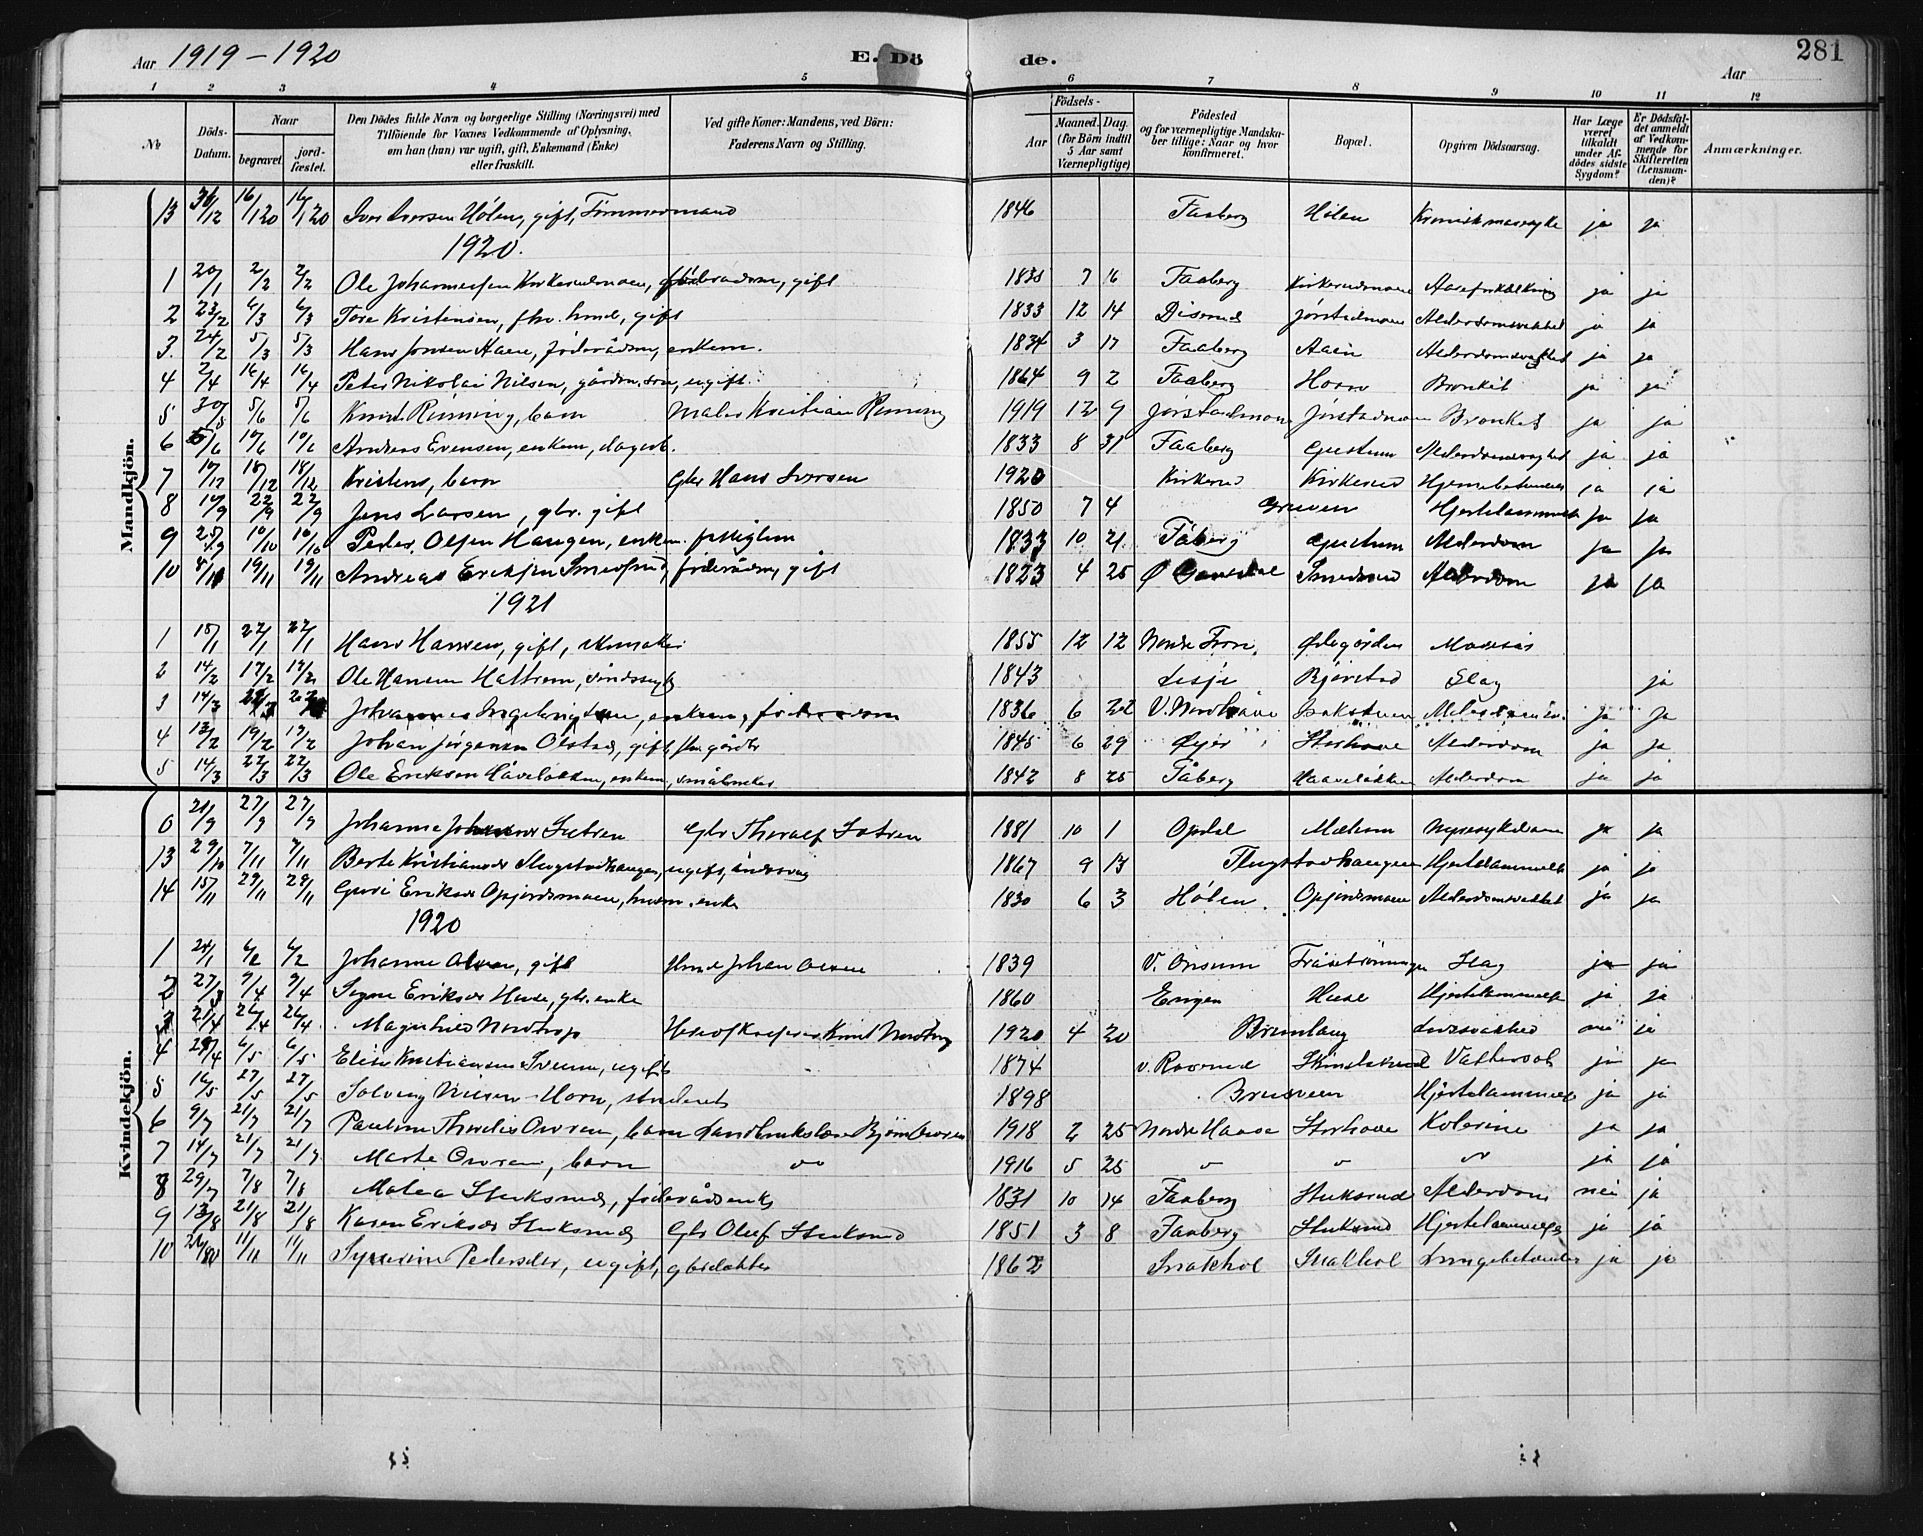 Aar 1919-1920 E. Dö de. Aar 281
1 2 3 4 5 6 7 8 9 10 11 12
No Döds-Datum. Naar begravet. jordfæstet. Den Dödes fulde Navn og borgerlige Stilling (Næringsvei) med Tilföiende for Voxnes Vedkommende af Oplysning, om han (hun) var ugift, gift, Enkemand (Enke) eller fraskilt. Ved gifte Koner: Mandens, ved Börn: Faderens Navn og Stilling. Födsels- Aar Maaned. Dag. (for Börn indtil 5 Aar samt Værnepligtige) Födested og for værnepligtige Mandskaber tillige: Naar og hvor konfirmeret. Bopæl. Opgiven Dödsaarsag. Har Læge været tilkaldt under Afdödes sidste Sygdom? Er Dödsfaldet anmeldt af Vedkommende for Skifteretten (Lensmanden)? Anmærkninger.
Mandkjön.
13 30/12 16/1 20 16/1 20 Iver Iversen Hølen, gift, Tømmermand 1846 Faaberg Hølen Kronisk mavesyke ja ja
1920.
1 20/1 2/2 2/2 Ole Johannessen Kirkerudmoen, gift 7 16 Faaberg Kirkerudmoen Aareforkalkning ja ja
2 22/2 6/3 6/3 Tore Kristensen, fhv. hmd, gift 1833 12 14 Jørstadmoen Alderdomssvakhed ja ja
3. 24/2 5/3 5/3 Hans Jonsen Aaen, føderaadsm, enkem. 1834 3 17 Faaberg Aaen Alderdomssvakhed ja ja
4 2/4 16/4 16/4 Peter Nikolai Nilsen, gårdm. søn, ugift. 1864 9 2 Faaberg Horn Bronkit ja ja
5 30/5 5/6 5/6 Knut Rinning, barn Maler Kristian Rinning 1919 12 9 Jørstadmoen Jørstadmoen Bronkit ja ja
6 5/6 10/6 10/6 Andreas Evensen, enkem, dagarb. 1833 8 31 Faaberg Alderdomssvaghed ja ja
7 18/12 18/12 Kristens, barn Gbr Hans Iversen 1920 Kirkerud Kirkerud ja ja
8 14/9 22/9 22/9 Jens Larsen, gbr. gift 1850 7 4 Gruven Hjertelammelse ja ja
9 25/9 10/10 10/10 Peder Olsen Haugen, enkem. fattiglem 1833 10 21. Fåberg Alderdom ja ja
10 19/11 19/11 Andreas Eriksen Smedsrud, føderådsm, gift 1823 4 25 Ø Gausdal Smedsrud Alderdom ja ja
1921
1 15/1 22/1 22/1 Hans Hansen, gift, skomaker 1855 12 12 Nordre Fron, Ødegården
2 14/2 17/2 17/2 Ole Hansen Hattrem, sindssyg 1843 Lesje Bjørstad Slag ja
3 14/3 Johannes Ingebrigtsen, enkem, føderaadsm 1836 6 22 Isakstuen ja ja
4 13/2 19/2 19/2 Johan Jørgensen Olstad, gift, fhv gårdbr 1845 6 29 Øyer Storhove Alderdom ja ja
5 14/3 22/3 22/3 Ole Eriksen Håveløkken, enkem, småbruker 1842 8 25 Fåberg Haaveløkken Alderdom ja ja
Kvindekjön.
0 21/9 27/9 27/9 Johanne Sætren Gbr Thoralf Sætren 1881 10 1 Opdal ja ja
13 29/10 7/11 7/11 Berte Kristiansdr Flugstadhaugen, ugift, åndssvag 1867 9 13 Flugstadhaugen Hjertelammelse ja ja
14 15/11 29/11 29/11 Guri Eriksdr Opjordsmoen, husm. enke 1830 6 3 Hølen. Opjordsmoen Alderdomssvakhet ja ja
1920
1 24/1 6/2 6/2 Johanne Olsen, gift Hmd Johan Olsen 1839 Slag ja ja
2 27/3 9/4 9/4 Signe Eriksdr Huse, gbr. enke 1860 Engen Huse Hjertelammelse ja ja
21/4 26/4 26/4 Magnhild Nordrup Knut Nordrup 1920 4 20 Brunlaug Livssvakhed nei ja
4 6/5 6/5 Elise Kristiansen Sveum, ugift 1874 Vattersot ja ja
5 16/5 27/5 27/5 Solveig Nilsen-Horn, student 1898 Brusveen Hjertelammelse ja ja
6 9/7 21/7 21/7 Pauline Thordis Owren, barn Landbrukslærer Bjørn Owren 1918 2 25 Nordre Haave Storhove Kolerine ja ja
7 14/7 21/7 21/7 Marte Owren, barn " 1916 5 25 " " " ja ja
8 29/7 7/8 7/8 Malea Stuksrud, føderådsenke 1831 10 14 Faaberg Stuksrud Alderdom nei ja
9 13/8 21/8 21/8 Karen Eriksdr Stuksrud Gbr Oluf Stuksrud 1851 3 8 Faaberg Stuksrud Hjertelammelse ja ja
10 11/11 11/11 Synnerine Pedersdtr, ugift, gbrdatter 1862 Snakhol Snakhol Lungebetændelse ja ja